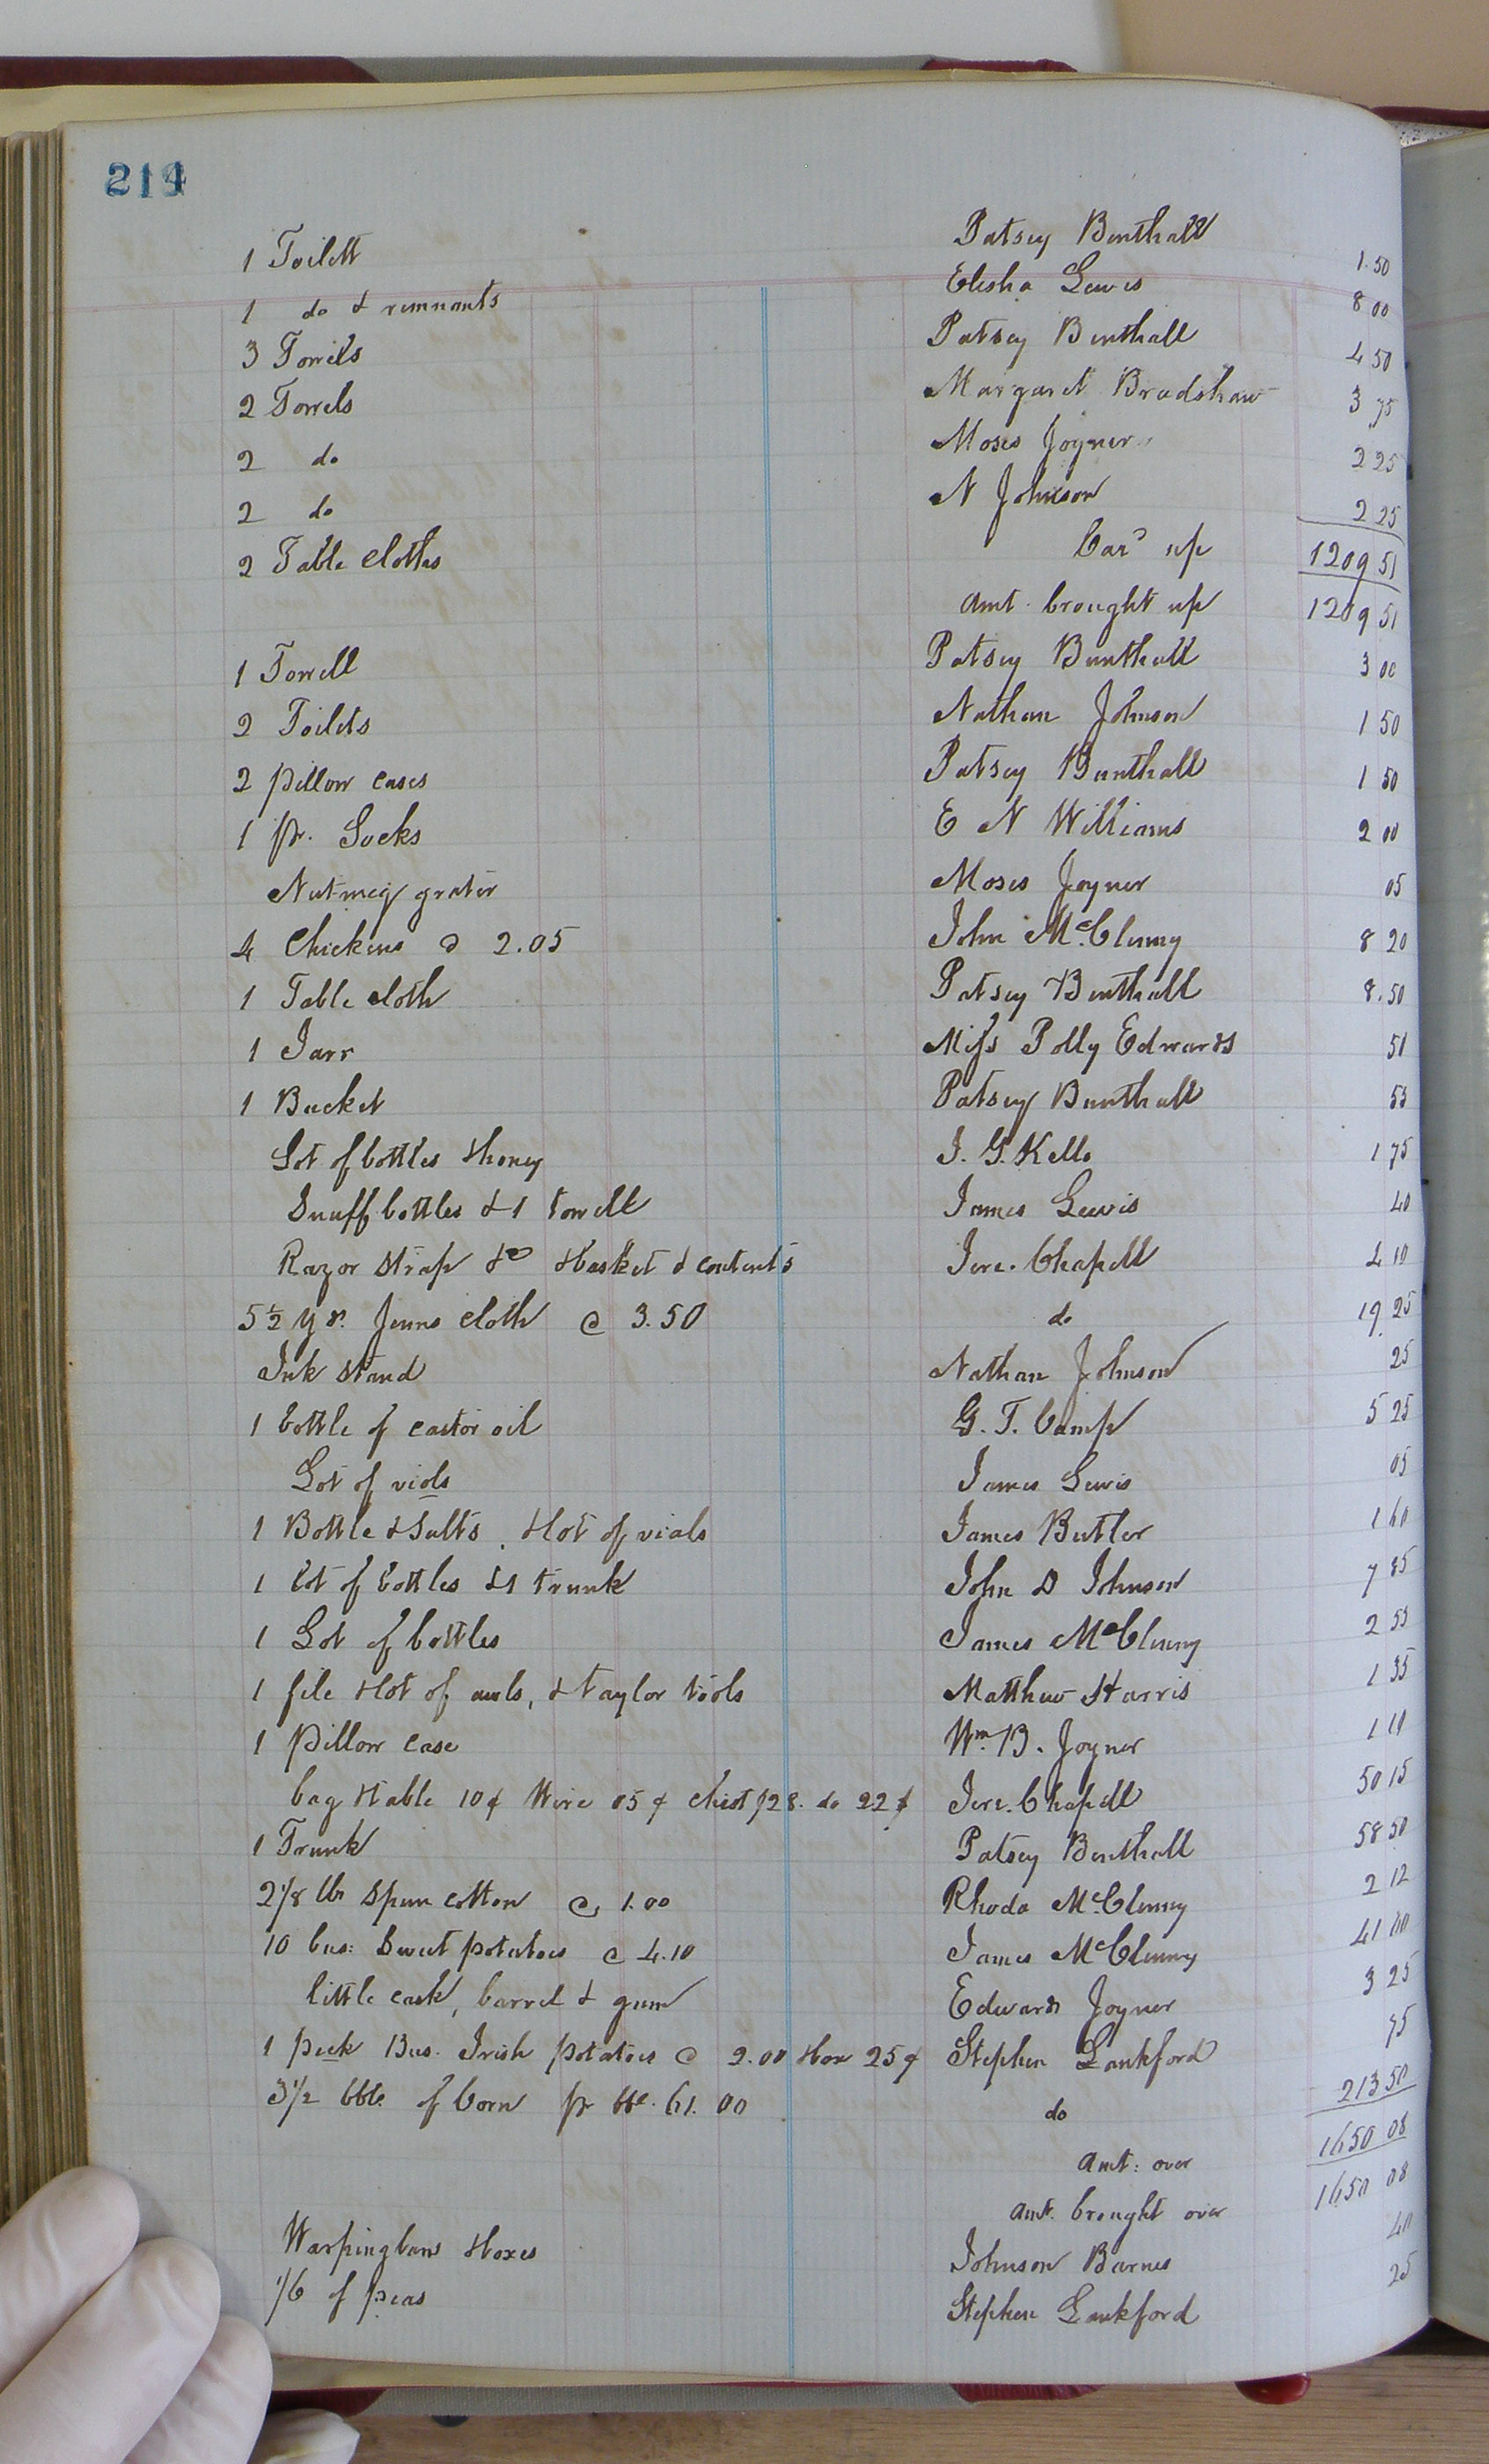 214
1 Toilett Patsey Benthall 1.50
1 do & remnants Elisha Lewis 8 00
3 Towels Patsey Benthall 4 50
2 Towels Margaret Bradshaw 3 75
2 do Moses Joyner 2 25
2 do N Johnson 2 25
2 Table cloths Car^d up 1209 51
Amt. brought up 1209 51
1 Towell Patsey Benthall 3 00
2 Toilets Nathan Johnson 1 50
2 pillow cases Patsey Benthall 1 50
1 pr. Socks E N Williams 2 00
Nutmeg grater Moses Joyner 05
4 Chickens @ 2.05 John McClenny 8 20
1 Table cloth Patsey Benthall 8.50
1 Jarr Miss Polly Edwards 51
1 Bucket Patsey Benthall 55
Lot of bottles & honey J. G. Kello 1 75
Snuff bottles & 1 towell James Lewis 40
Razor strap &c & basket & contents Jere. Chapell 4 10
5½ yds. Jeans cloth @ 3.50 do 19.25
Ink stand Nathan Johnson 25
1 bottle of castor oil G. T. Camp 5 25
Lot of viols James Lewis 05
1 Bottle & Salts. & lot of vials James Butler 1 60
1 Lot of bottles & 1 trunk John D Johnson 7 85
1 Lot of bottles James McClenny 2 55
1 file & lot of awls, & taylor tools Matthew Harris 1 35
1 Pillow case Wm. B. Joyner 1 10
bag & table 10¢ Wire 05¢ chest $28. do 22$ Jere. Chapell 50 15
1 Trunk Patsey Benthall 58 50
2 1/8 lbs spun cotton @ 1.00 Rhoda McClenny 2 12
10 bus: Sweet potatoes @ 4.10 James McClenny 41 00
little cask, barrel & gum Edwards Joyner 3 25
1 peck Bus. Irish potatoes @ 2.00 & box 25¢ Stephen Lankford 75
3½ bbls of Corn pr bbl. 61.00 do 213 50
Amt: over 1650 08
Amt. brought over 1650 08
Warping bars & boxes Johnson Barnes 40
1/6 of peas Stephen Lankford 25